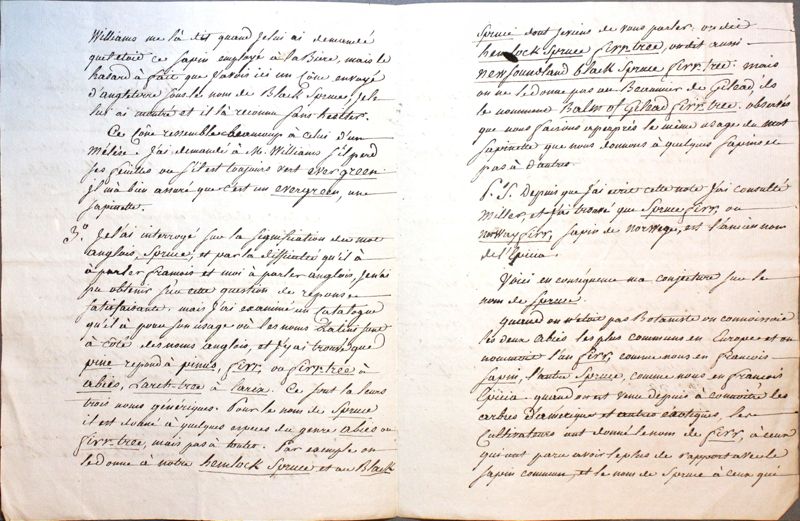 Williams me l'a dit quand je lui ai demandé
quel étoit ce sapin employé à la Biere, mais le
hasard a fait que j'avois ici un Cône envoyé
d'angleterre sous le nom de Black Spruce, je le
lui ai montré et il l'a reconnu sans hesiter.
Ce Cône ressemble beaucoup à celui d'un
Méleze. J'ai demandé à M. Williams s'il perd
ses feuilles ou s'il est toujours vert evergreen
il m'a bien assuré que c'est un evergreen, une
sapinette.
3.º Je l'ai interrogé sur la signification du mot
anglois, Spruce, et par la difficulté qu'il a
à parler francois et moi à parler anglois, je n'ai
pu obtenir sur cette question de reponse
satisfaisante. mais j'ai examiné un Catalogue
qu'il a pour son usage où les noms Latins sont
à côté des noms anglois, et j'y ai trouvé que
pine repond à pinus, firr, ou firr tree à
abies, Larch-tree à larix. Ce sont là leurs
trois noms génériques. Pour le nom de Spruce
il est donné à quelques especes du genre abies ou
firr-tree, mais pas à toutes. Par exemple on
le donne à notre hemlock Spruce et au Black
Spruce dont je viens de vous parler: on dit
hemlock Spruce firr tree, on dit aussi
newfoundland black Spruce firr tree. mais
on ne le donne pas au Beaumier de Gilead, ils
le nomment Balm of Gilead firr tree. observés
que nous faisons apeuprés le même usage du mot
sapinette que nous donnons à quelques sapins et
pas à d'autres.
P.S. Depuis que j'ai ecrit cette note j'ai consulté
Miller, et j'ai trouvé que Spruce firr, ou
norway firr, sapin de norwege, est l'ancien nom
de l'Epicia.
Voici en conséquence ma conjecture sur le
nom de spruce.
quand on n'étoit pas Botaniste on connoissoit
les deux abies les plus communs en Europe et on
nommoit l'un firr, comme nous en francois
sapin, l'autre Spruce, comme nous en francois
Epicia. quand on est venu depuis à connoitre les
arbres d'amerique et autres exotiques, les
Cultivateurs ont donné le nom de firr à ceux
qui ont paru avoir le plus de rapport avec le
sapin commun, et le nom de Spruce à ceux qui